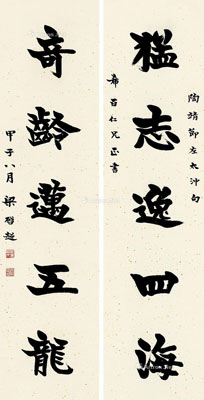 陶靖節左太沖句
猛志逸四海
仁兄正書
奇齡邁五龍
甲子八月 梁啟超